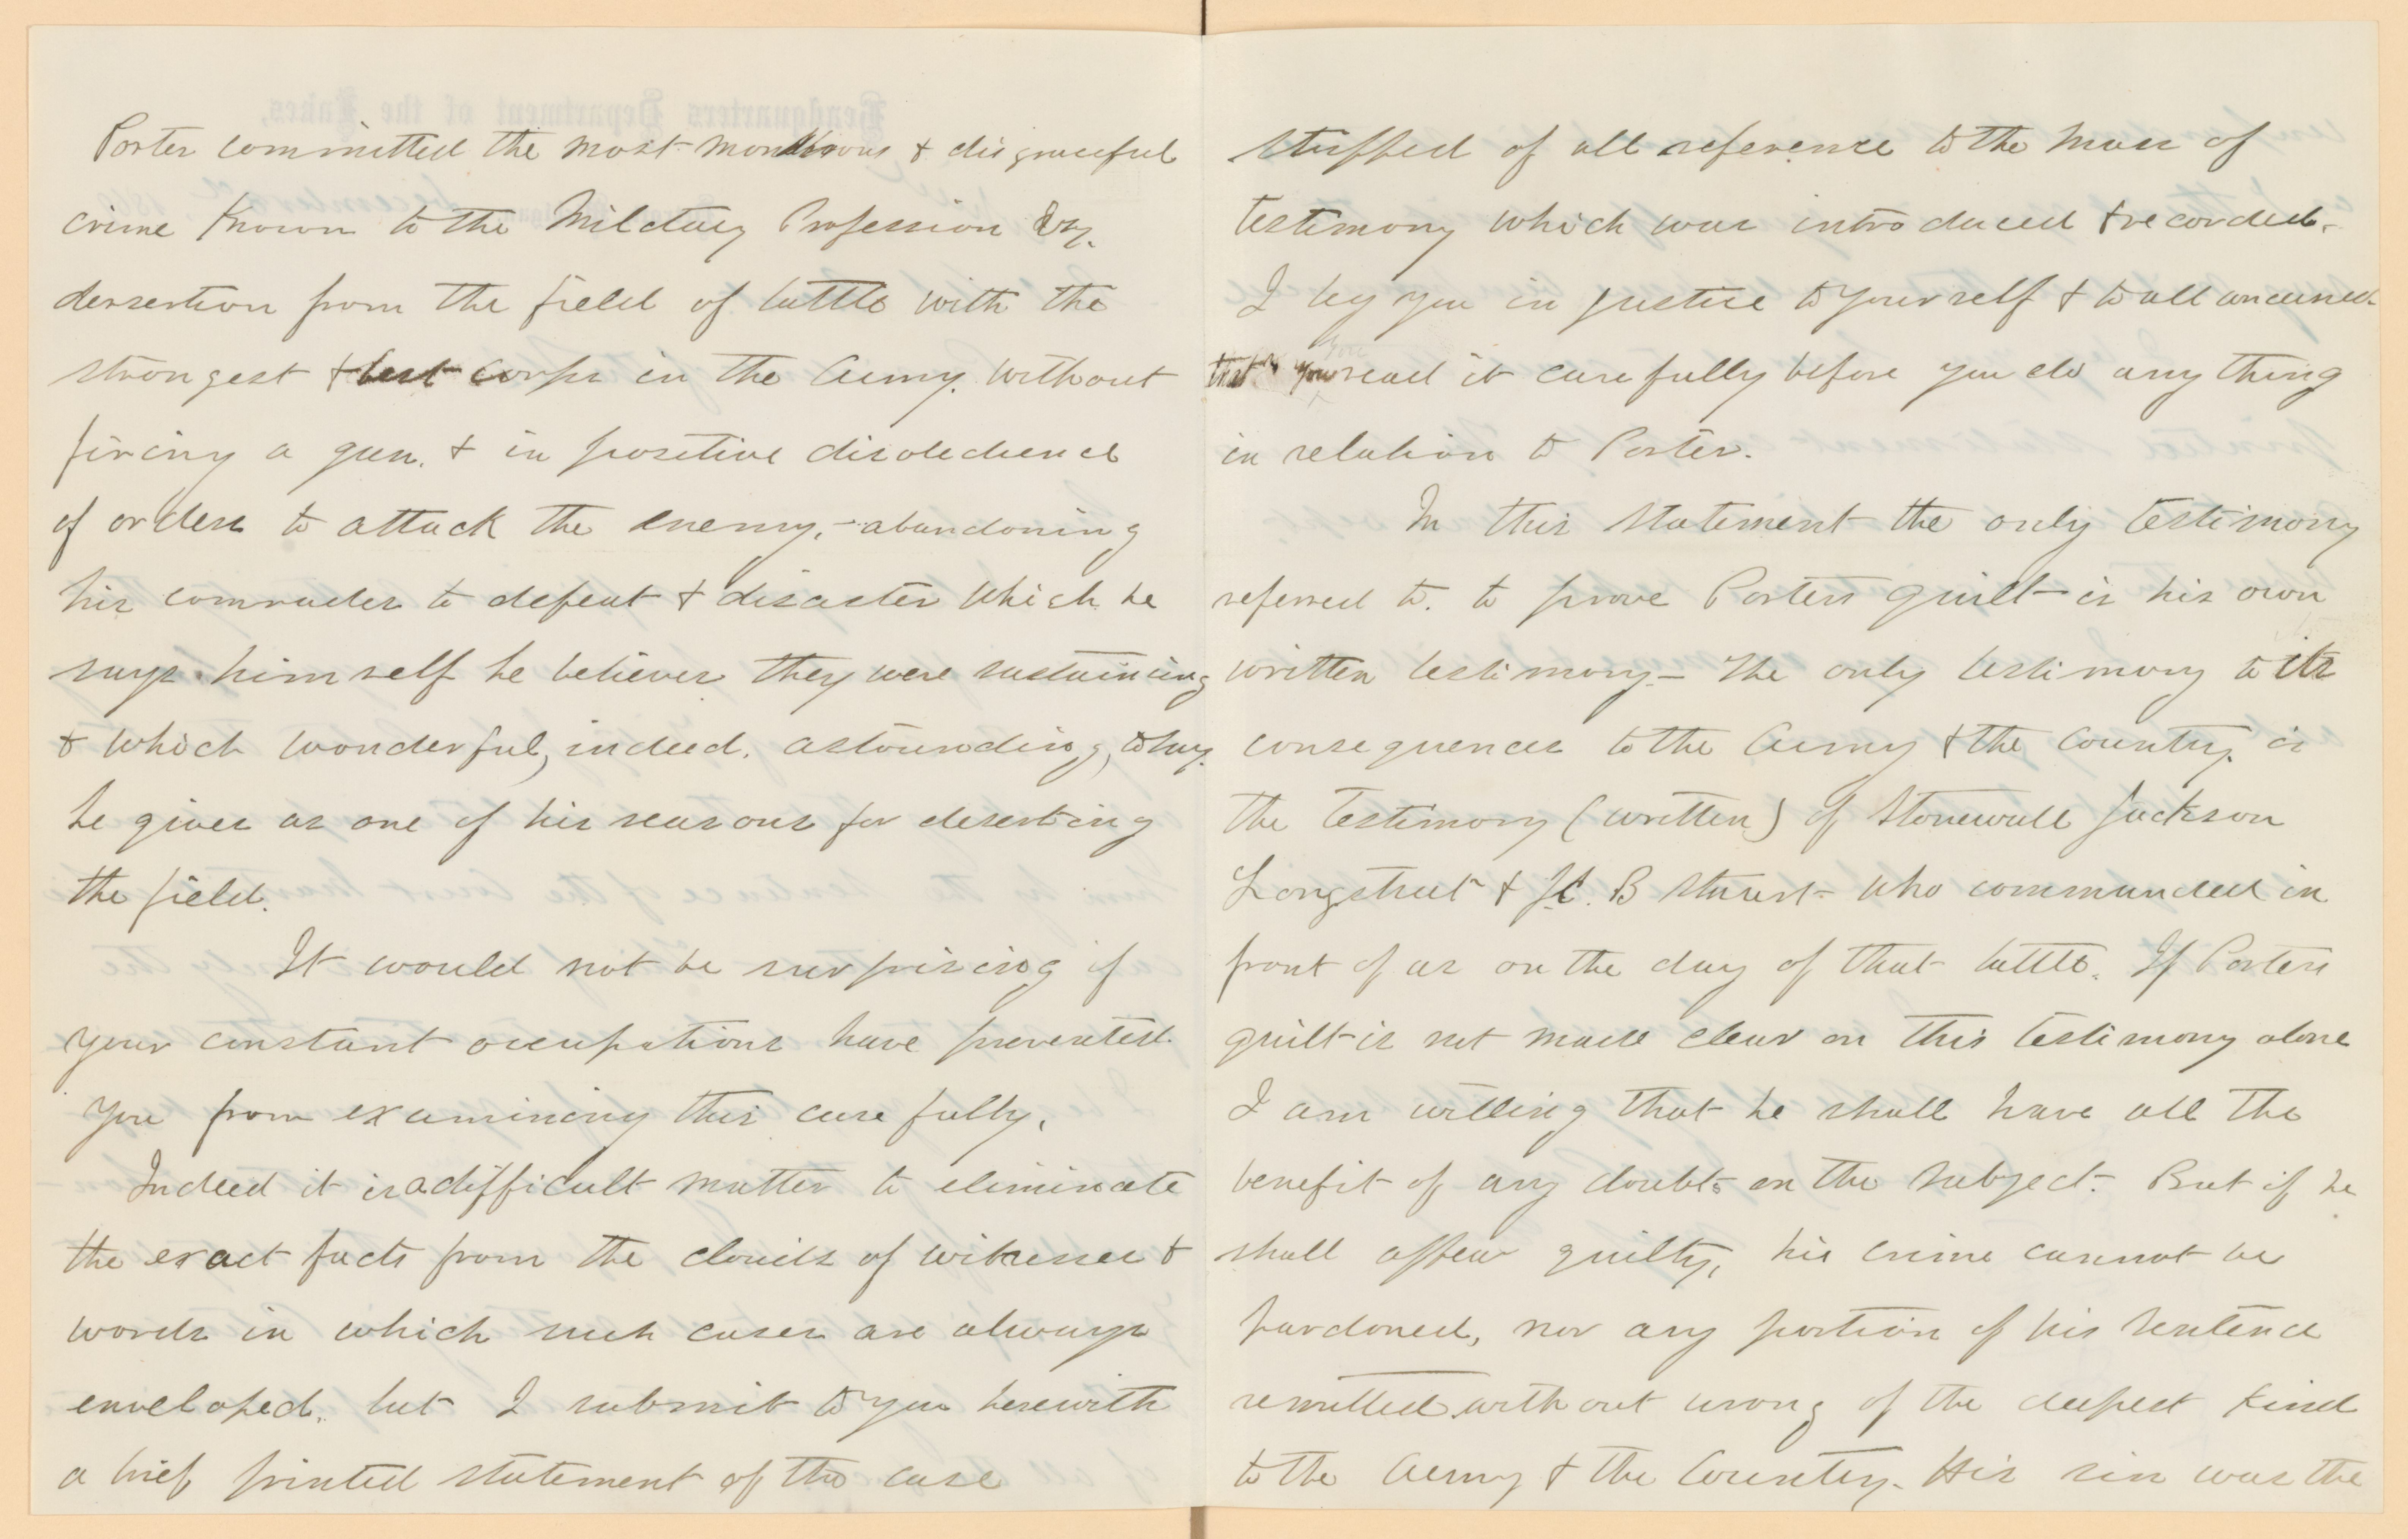 Porter committed the most monstrous & disgraceful
crime known to the Military Profession viz.
desertion from the field of battle with the
strongest & best corps in the Army. without
firing a gun. & in positive disobedience
of orders to attack the enemy, - abandoning
his comrades to defeat & disaster which he
says himself he believes they were sustaining
& which wonderful, indeed. astounding, to say.
he gives as one of his reasons for deserting
the field.
It would not be surprising if
your constant occupations have prevented
you from examining this carefully.
Indeed it is a difficult matter to eliminate
the exact facts from the clouds of witnesses &
words in which such cases are always
enveloped. but I submit to you herewith
a brief printed statement of the case
stripped of all reference to the mass of
testimony which was introduced & recorded.
I beg you in justice to yourself & to all concerned
that you read it carefully before you do anything
in relation to Porter.
In this statement the only testimony
referred to. to prove Porters guilt is his own
written testimony - The only testimony to its
consequences to the Army & the Country. is
the testimony (written) of Stonewall Jackson
Longstreet & J.E.B Stuart - who commanded in
front of us on the day of that battle. If Porters
guilt is not made clear on this testimony alone
I am willing that he shall have all the
benefit of any doubts on the subject. But if he
shall appear guilty, his crime cannot be
pardoned, nor any portion of his sentence
remitted without wrong of the deepest kind
to the Army & the Country. His sin was the